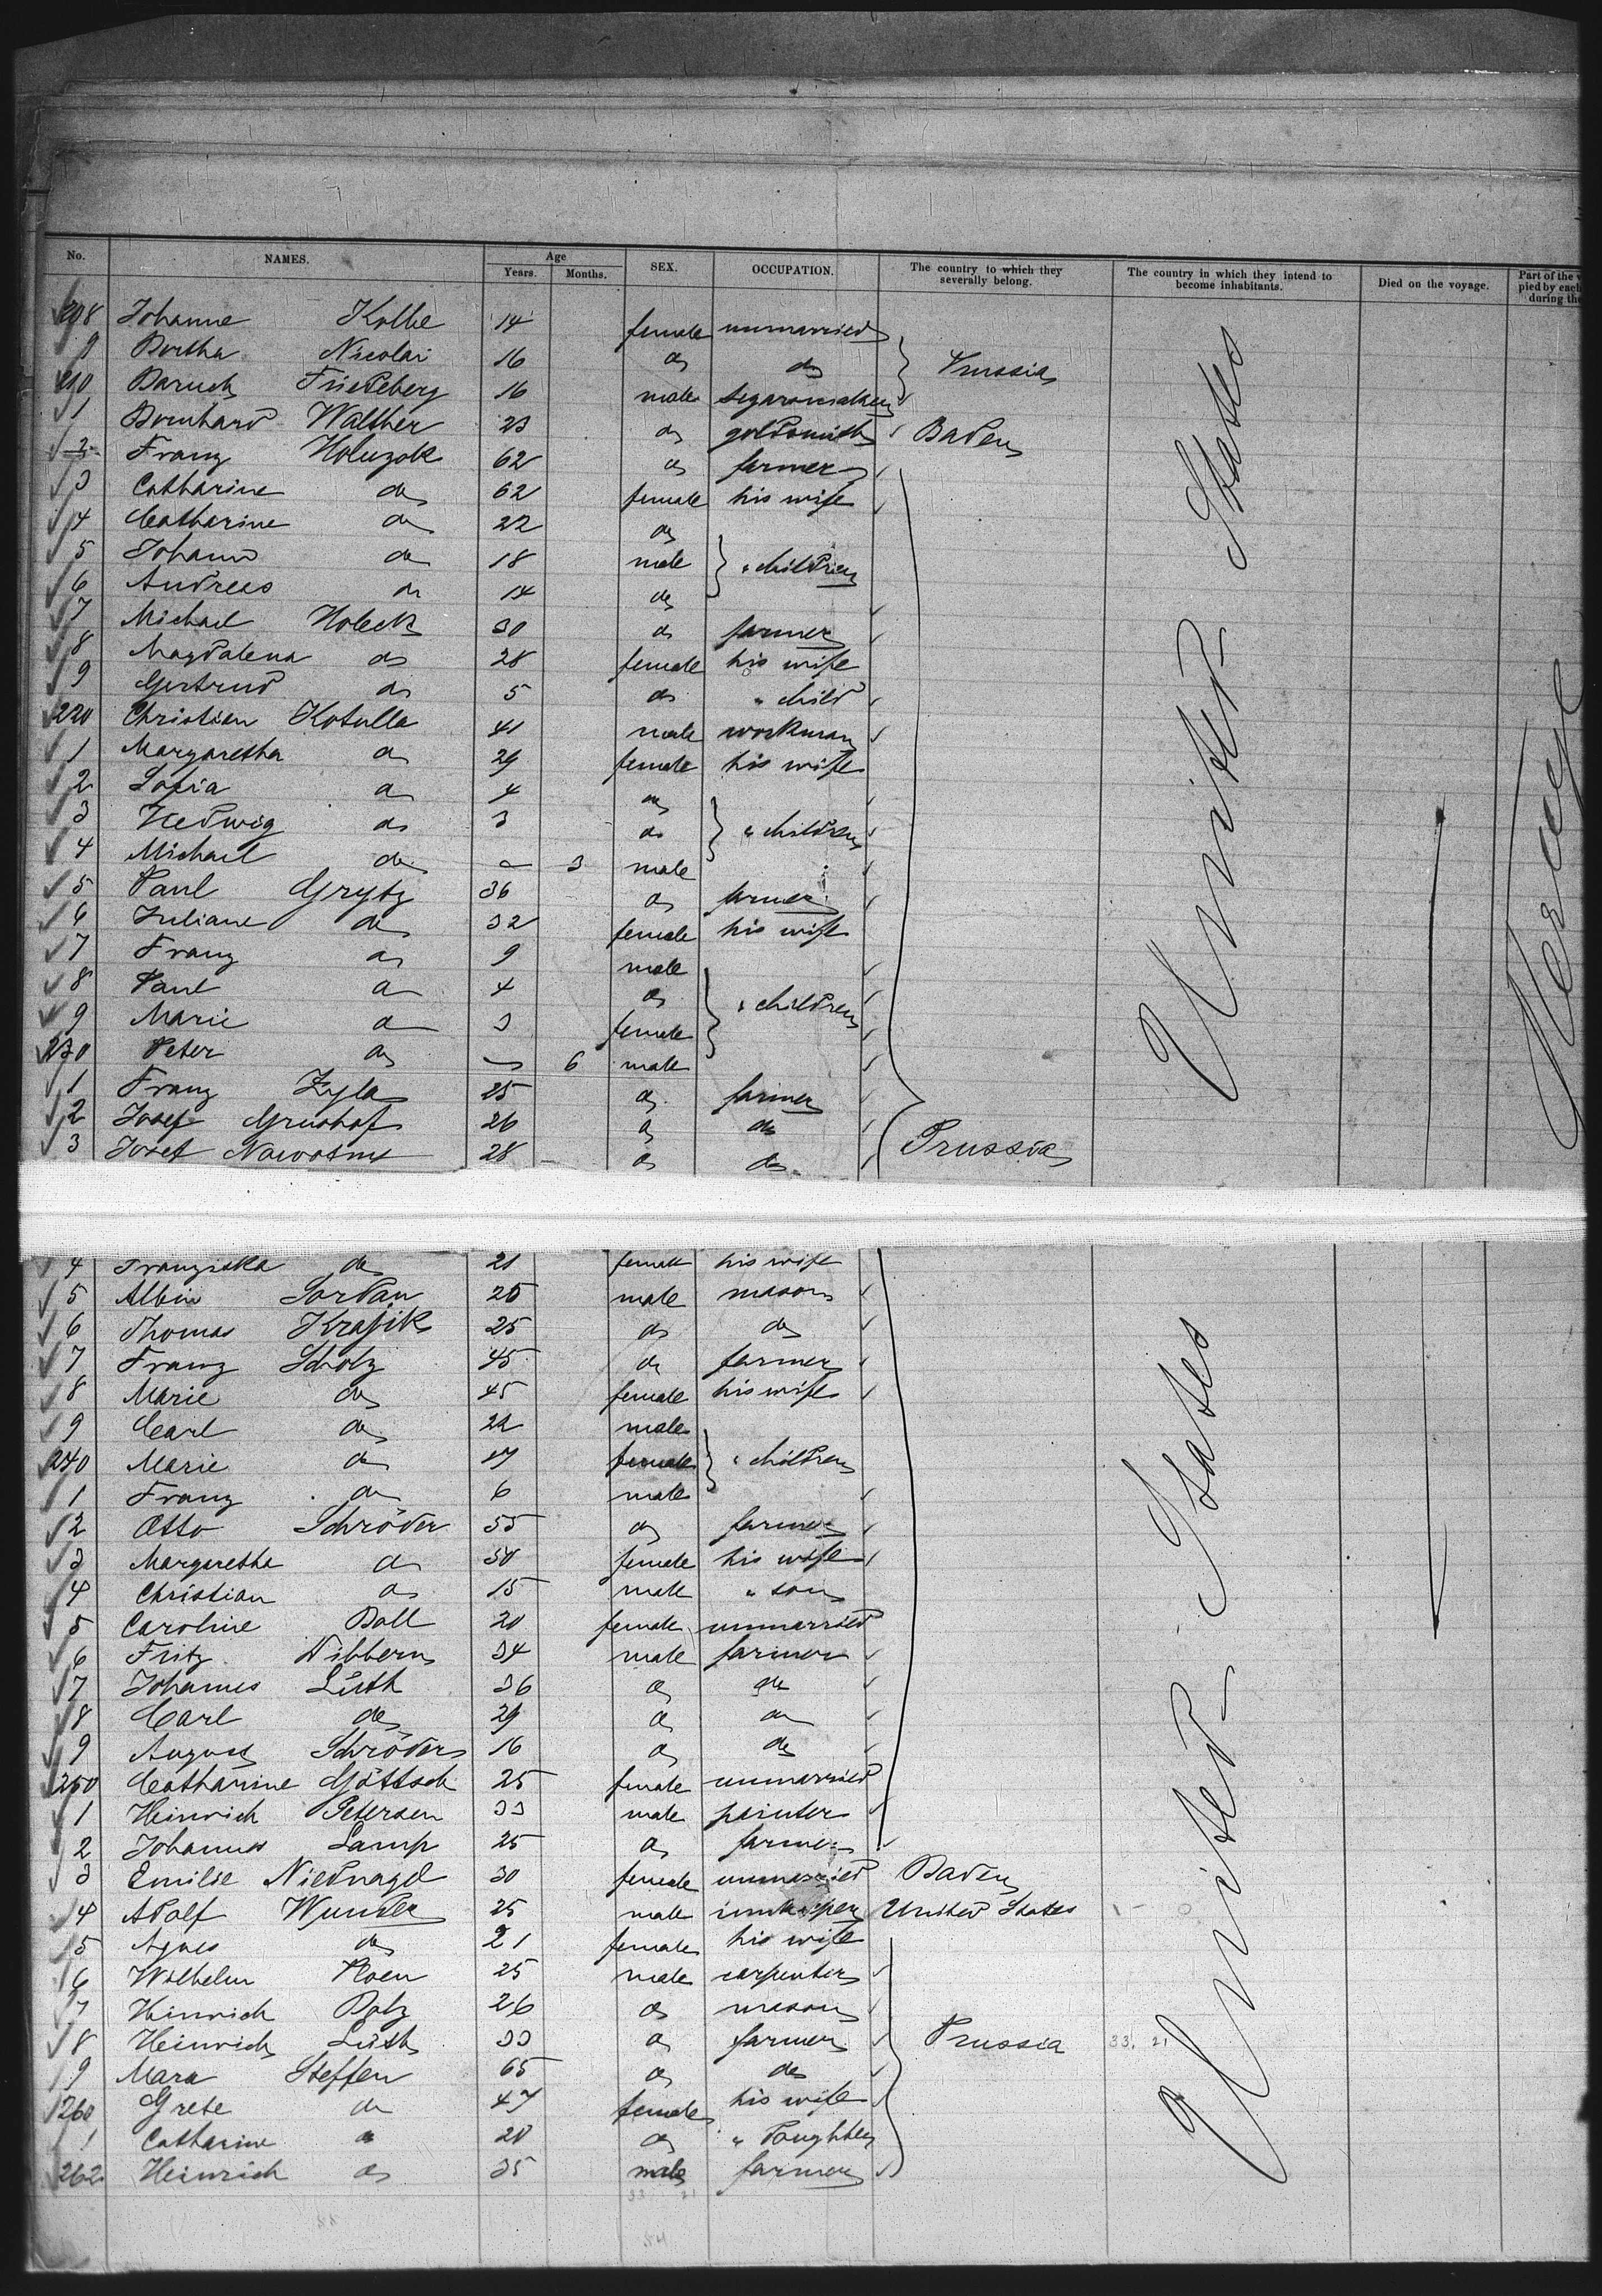 No. NAMES. Age Years. Months. SEX. OCCUPATION. The country to which they severally belong. The country in which they intend to become inhabitants. Died on the voyage. Part of the
pied by each
during the
208 Johanne Kolbe 14 female unmarried
9 Bertha Nicolai 16 do do Prussia
210 Baruch Friedeberg 16 male segarsmaker
1 Bernhard Walther 23 do goldsmith Baden
2 Franz Holuzok 62 do farmer
3 Catharine do 62 female his wife
4 Catharine do 22 do
5 Johann do 18 male " children
6 Andreas do 14 do
7 Michael Holeck 30 do farmer
8 Magdalena do 28 female his wife
9 Gertrud do 5 do " child
220 Christian Kotulla 41 male workman
1 Margaretha do 29 female his wife
2 Sofia do 4 do
3 Hedwig do 3 do " children
4 Michael do — 3 male
5 Paul Grytz 36 do farmer
6 Juliane do 32 female his wife
7 Franz do 9 male
8 Paul do 4 do " children
9 Marie do 3 female
230 Peter do — 6 male
1 Franz Zyla 25 do farmer
2 Josef Grushof 26 do do
3 Josef Nawotny 28 do do Prussia
United States
4 Franziska do 21 female his wife
5 Albin Jordan 25 male mason
6 Thomas Krajik 25 do do
7 Franz Scholz 45 do farmer
8 Marie do 45 female his wife
9 Carl do 22 male
240 Marie do 17 female " children
1 Franz do 6 male
2 Otto Schröder 55 do farmer
3 Margaretha do 50 female his wife
4 Christian do 15 male " son
5 Caroline Doll 20 female unmarried
6 Fritz Wibbern 34 male farmer
7 Johannes Lüth 36 do do
8 Carl do 29 do do
9 August Schröder 16 do do
250 Catharine Göttsch 25 female unmarried
1 Heinrich Petersen 33 male painter
2 Johannes Lamp 25 do farmer
3 Emilie Niednagel 30 female unmarried Baden
4 Adolf Wunder 25 male innkeeper United States
5 Agnes do 21 female his wife
6 Wilhelm Ploen 25 male carpenter
7 Hinrich Bolz 26 do mason
8 Heinrich Lüth 33 do farmer Prussia 33. 21
9 Marx Steffen 65 do do
260 Grete do 47 female his wife
1 Catharine do 20 do " doughter
262 Heinrich do 35 male farmer
United States